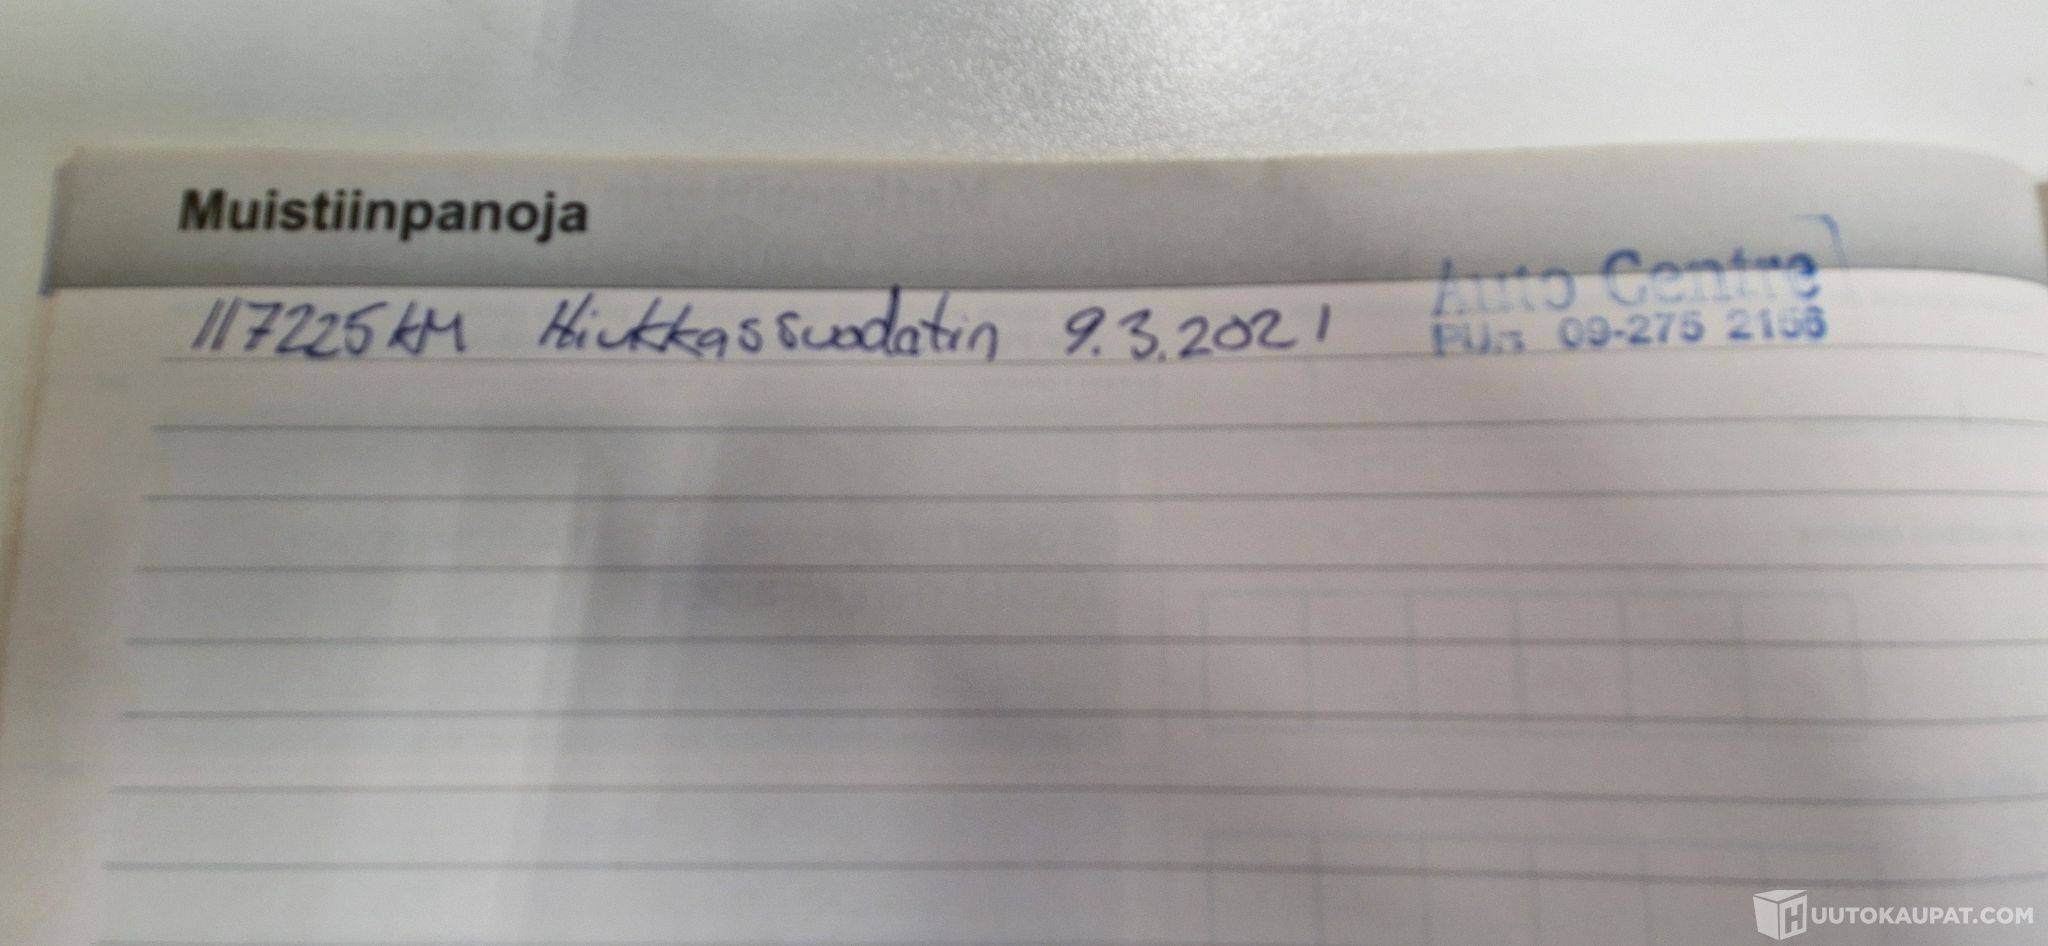 Muistiinpanoja
117225 KM Hiukkassuodatin 9.3.2021
Auto Centre
PUH 09-275 2156
HUUTOKAUPAT.COM